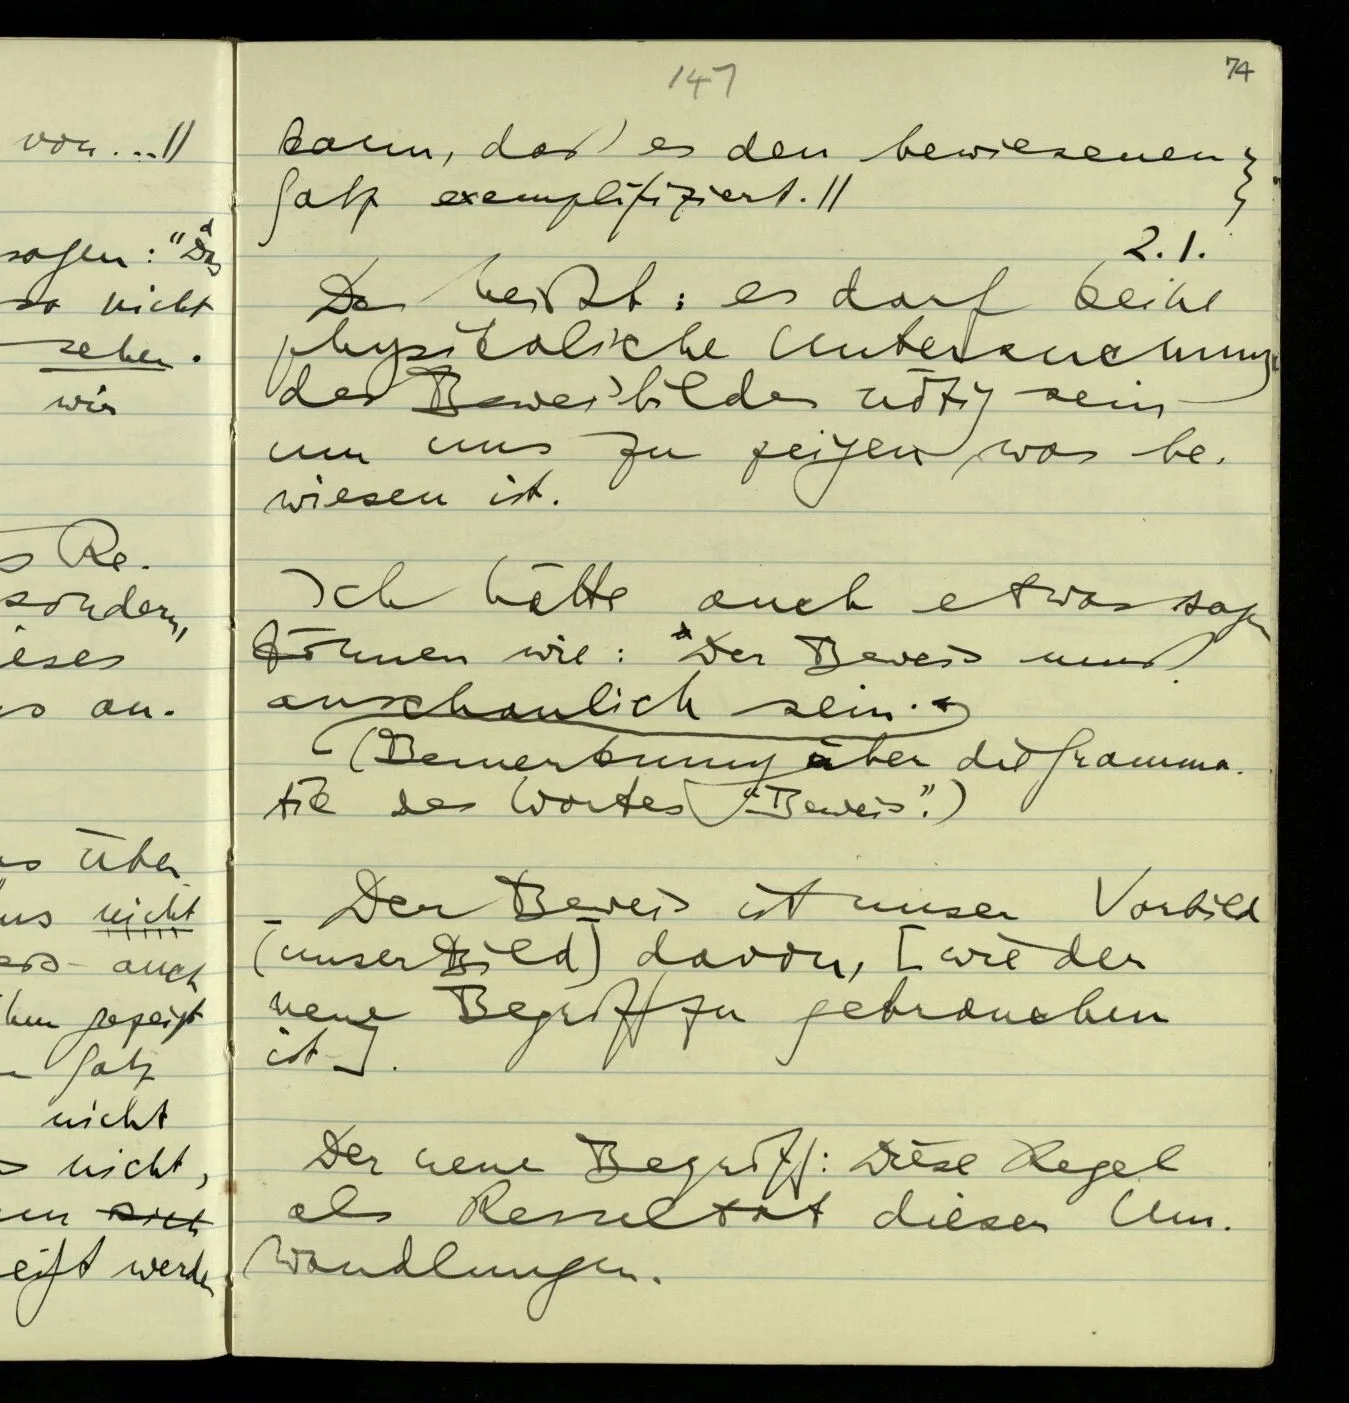 von...//
sagen: "Das
so nicht
sehen.
wir
Re-
sondern,
ieses
an-
Über
nicht
auch
gezeigt
Satz
nicht
nicht,
sich
werden
147
74
kann, daß es den bewiesenen
Satz exemplifiziert.//
2.1.
Das heißt: es darf keine
physikalische Untersuchung
des Beweisbildes nötig sein
um uns zu zeigen was be-
wiesen ist.
Ich hätte auch etwas sagen
können wie: "Der Beweis muß
anschaulich sein."
(Bemerkung über die Gramma-
tik des Wortes "Beweis".)
Der Beweis ist unser Vorbild
[unser Bild] davon, [wie der
neue Begriff zu gebrauchen
ist].
Der neue Begriff: Diese Regel
als Resultat dieser Um-
wandlungen.